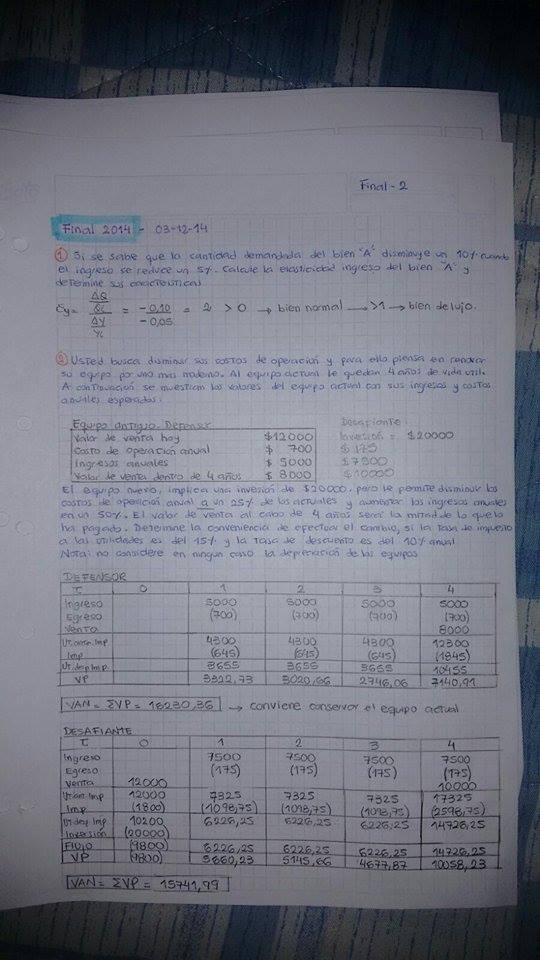 Final - 2
Final 2014 - 03-12-14
① Si se sabe que la cantidad demandada del bien "A" disminuye un 10% cuando
el ingreso se reduce un 5%. Calcule la elasticidad ingreso del bien "A" y
determine sus características.
Ey = ΔQ/Qi / ΔY/Yi = -0,10 / -0,05 = 2 > 0 → bien normal → >1 → bien de lujo.
② Usted busca disminuir sus costos de operación y para ello piensa en renovar
su equipo por uno mas moderno. Al equipo actual le quedan 4 años de vida util.
A continuación se muestran los valores del equipo actual con sus ingresos y costos
anuales esperados:
Equipo antiguo - Defensor Desafiante:
Valor de venta hoy $12000 Inversión = $20000
Costo de operación anual $ 700 $ 175
Ingresos anuales $ 5000 $ 7500
Valor de venta dentro de 4 años $ 8000 $ 10000
El equipo nuevo, implica una inversión de $20000, pero le permite disminuir los
costos de operación anual a un 25% de los actuales y aumentar los ingresos anuales
en un 50%. El valor de venta al cabo de 4 años será la mitad de lo que lo
ha pagado. Determine la conveniencia de efectuar el cambio, si la tasa de impuesto
a las utilidades es del 15% y la tasa de descuento es del 10% anual.
Nota: no considere en ningún caso la depreciación de los equipos
DEFENSOR
T 0 1 2 3 4
Ingreso 5000 5000 5000 5000
Egreso (700) (700) (700) (700)
Venta 8000
Ut. antes Imp 4300 4300 4300 12300
Imp (645) (645) (645) (1845)
Ut. desp Imp. 3655 3655 3655 10455
VP 3322,73 3020,66 2746,06 7140,91
VAN = ΣVP = 16230,36 → conviene conservar el equipo actual
DESAFIANTE
T 0 1 2 3 4
Ingreso 7500 7500 7500 7500
Egreso (175) (175) (175) (175)
Venta 12000 10000
Ut. ant Imp 12000 7325 7325 7325 17325
Imp (1800) (1098,75) (1098,75) (1098,75) (2598,75)
Ut. desp Imp 10200 6226,25 6226,25 6226,25 14726,25
Inversión (20000)
FLUJO (9800) 6226,25 6226,25 6226,25 14726,25
VP (9800) 5660,23 5145,66 4677,87 10058,23
VAN = ΣVP = 15741,99